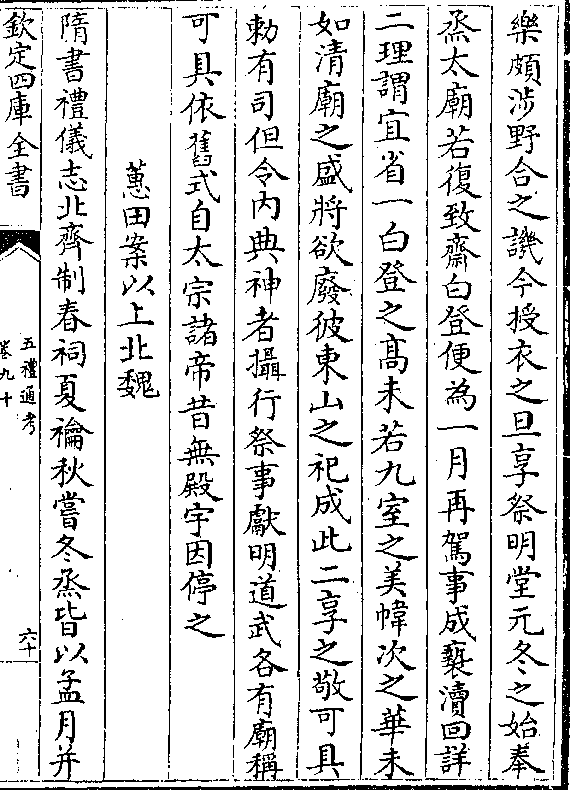 樂頗涉野合之譏今授衣之旦享祭明堂元冬之始奉
烝太廟若復致齋白登便為一月再駕事成褻瀆回詳
二理謂宜省一白登之髙未若九室之美幃次之華未
如清廟之盛將欲廢彼東山之祀成此二享之敬可具
勅有司但令内典神者攝行祭事獻明道武各有廟稱
可具依舊式自太宗諸帝昔無殿宇因停之
蕙田案以上北魏
隋書禮儀志北齊制春祠夏禴秋嘗冬烝皆以孟月并
欽定四庫全書
五禮通考
卷九十
六十